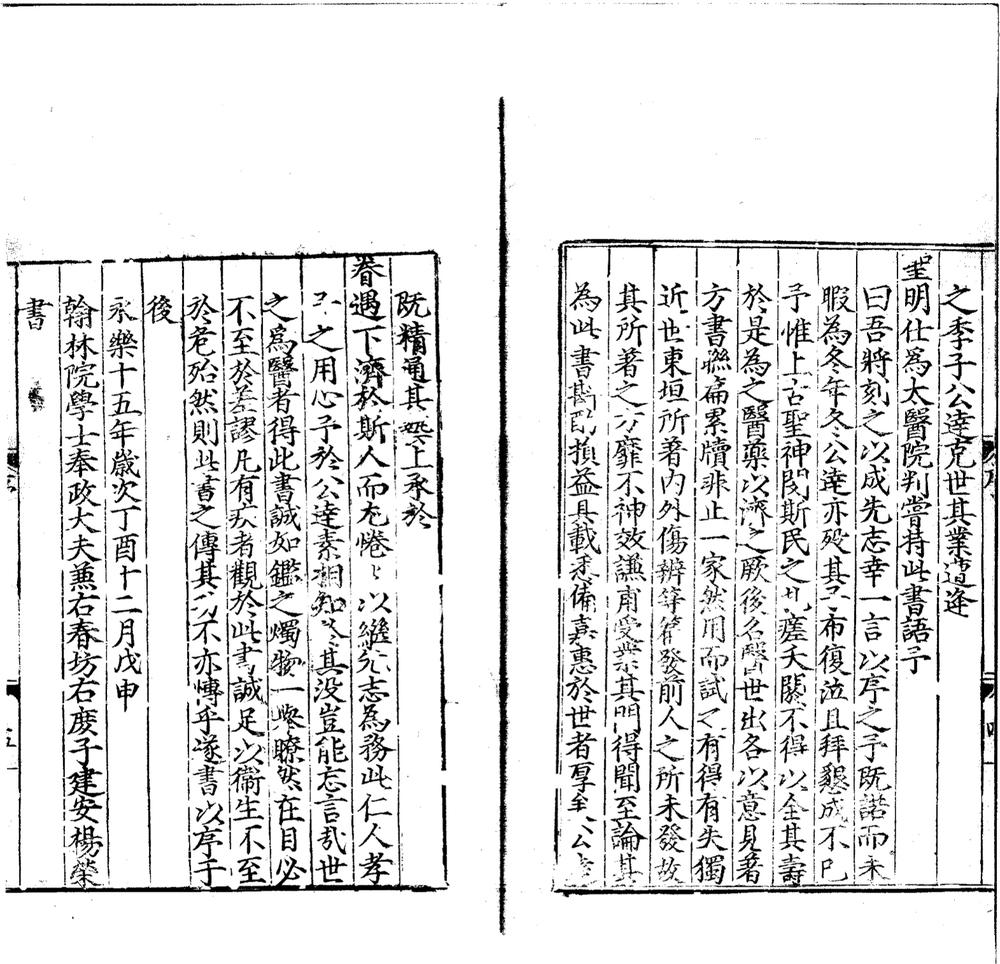 之季子公達克世其業遭逢
聖明仕為太醫院判嘗持此書語予
曰吾將刻之以成先志幸一言以序之予既諾而未
暇為冬年冬公達亦歿其子布復泣且拜懇成不已
予惟上古聖神閔斯民之札瘥夭閼不得以全其壽
於是為之醫藥以濟之厥後名醫世出各以意見著
方書聮扁累牘非止一家然用而試之有得有失獨
近世東垣所著内外傷辨等篇發前人之所未發故
其所著之方靡不神效謙甫受業其門得聞至論其
為此書斟酌損益具載悉備嘉惠於世者厚矣公達
既精通其業上承於
眷遇下濟於斯人而尤惓〻以繼先志為務此仁人孝
子之用心予於公達素相知今其没豈能忘言哉世
之為醫者得此書誠如鑑之燭物一舉瞭然在目必
不至於差謬凡有疾者觀於此書誠足以衞生不至
於危殆然則此書之傳其功不亦慱乎遂書以序于
後
永樂十五年歲次丁酉十二月戊申
翰林院學士奉政大夫兼右春坊右庻子建安楊榮
書
序
四
五